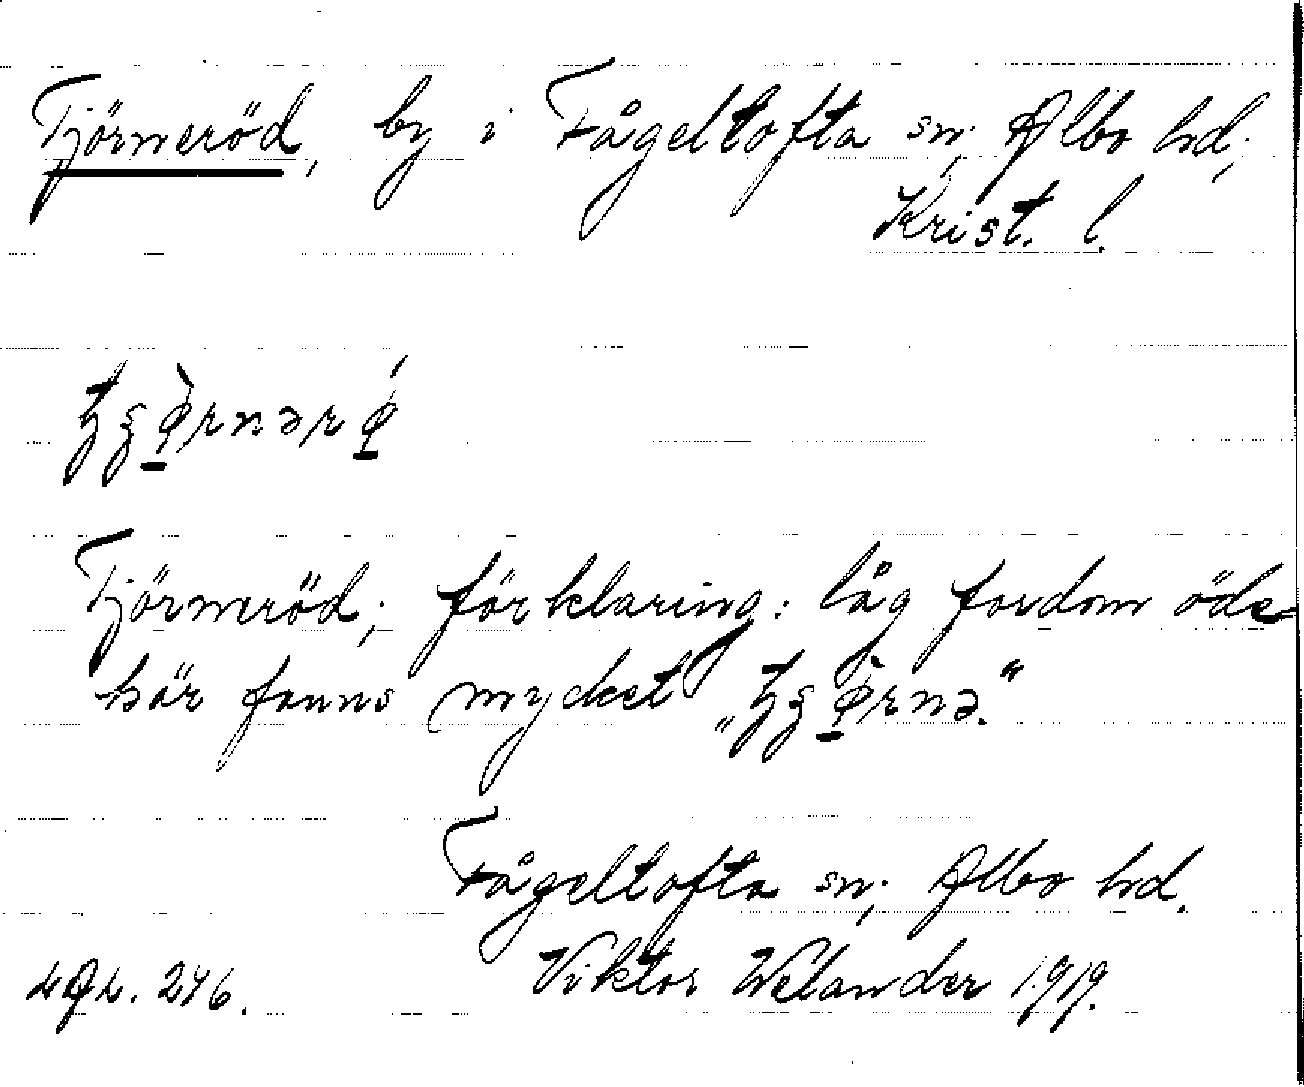 Tjörneröd, by i Fågeltofta sn; Albo hd;
Krist. l.
Tjörneröd; förklaring: låg fordom öde-
här fanns mycket
Fågeltofta sn; Albo hd.
246. Viktor Welander 1919.